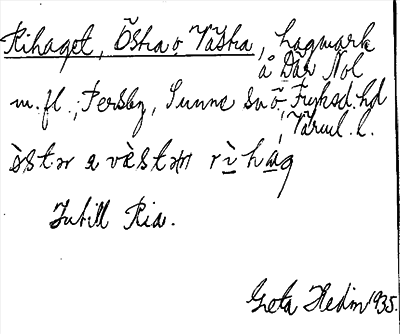 Rihaget, Östra o Västra, hagmark
å Där Nol
m. fl., Persby, Sunne sn ö Fryksd. hd
Värml. l.
òstər a vàestəṃ rì̱hà̱g
Intill Ria.
Greta Hedin 1935.